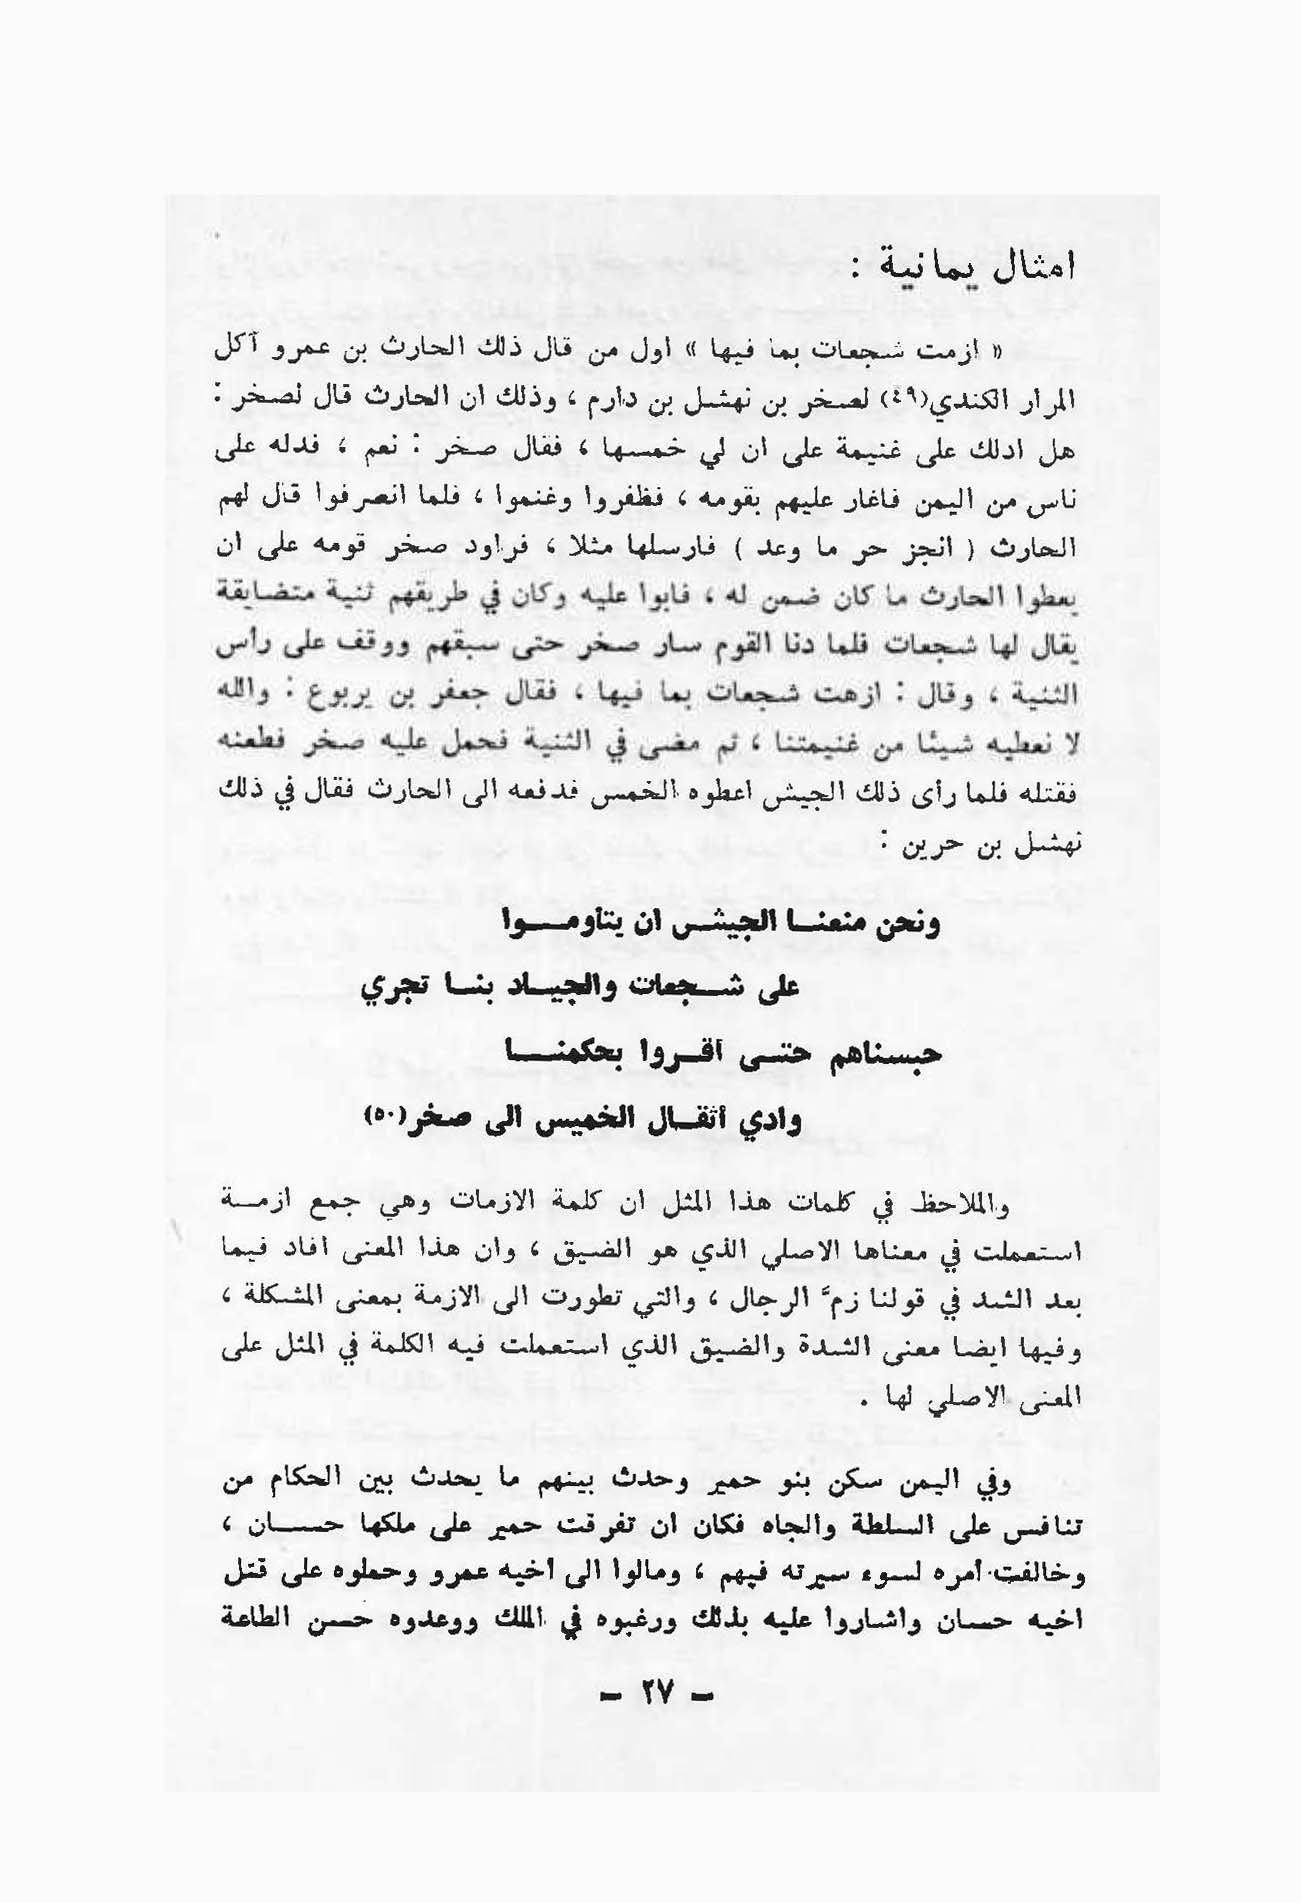 امثال يمانية :
« ازمت شجعات بما فيها » اول من قال ذلك الحارث بن عمرو آكل
المرار الكندي(٤٩) لصخر بن نهشل بن دارم ، وذلك ان الحارث قال لصخر :
هل ادلك على غنيمة على ان لي خمسها ، فقال صخر : نعم ، فدله على
ناس من اليمن فاغار عليهم بقومه ، فظفروا وغنموا ، فلما انصرفوا قال لهم
الحارث ( انجز حر ما وعد ) فارسلها مثلا ، فراود صخر قومه على ان
يعطوا الحارث ما كان ضمن له ، فابوا عليه وكان في طريقهم ثنية متضايقة
يقال لها شجعات فلما دنا القوم سار صخر حتى سبقهم ووقف على رأس
الثنية ، وقال : ازهت شجعات بما فيها ، فقال جعفر بن يربوع : والله
لا نعطيه شيئا من غنيمتنا ، ثم مضى في الثنية فحمل عليه صخر فطعنه
فقتله فلما رأى ذلك الجيش اعطوه الخمس فدفعه الى الحارث فقال في ذلك
نهشل بن حرين :
ونحن منعنا الجيش ان يتأوموا
على شجعات والجياد بنا تجري
حبسناهم حتى أقروا بحكمنا
وادي أثقال الخميس الى صخر(٥٠)
والملاحظ في كلمات هذا المثل ان كلمة الازمات وهي جمع ازمة
استعملت في معناها الاصلي الذي هو الضيق ، وان هذا المعنى افاد فيما
بعد الشد في قولنا زمَّ الرجال ، والتي تطورت الى الازمة بمعنى المشكلة ،
وفيها ايضا معنى الشدة والضيق الذي استعملت فيه الكلمة في المثل على
المعنى الاصلي لها .
وفي اليمن سكن بنو حمير وحدث بينهم ما يحدث بين الحكام من
تنافس على السلطة والجاه فكان ان تفرقت حمير على ملكها حسان ،
وخالفت أمره لسوء سيرته فيهم ، ومالوا الى أخيه عمرو وحملوه على قتل
اخيه حسان واشاروا عليه بذلك ورغبوه في الملك ووعدوه حسن الطاعة
– ٢٧ –